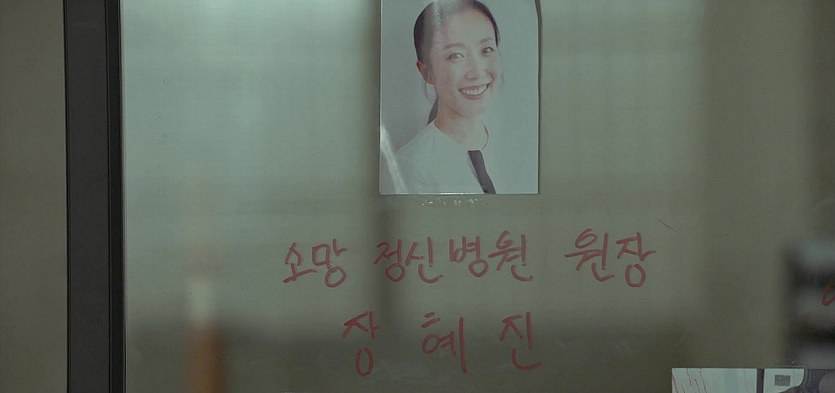 소망 정신병원 원장
장혜진